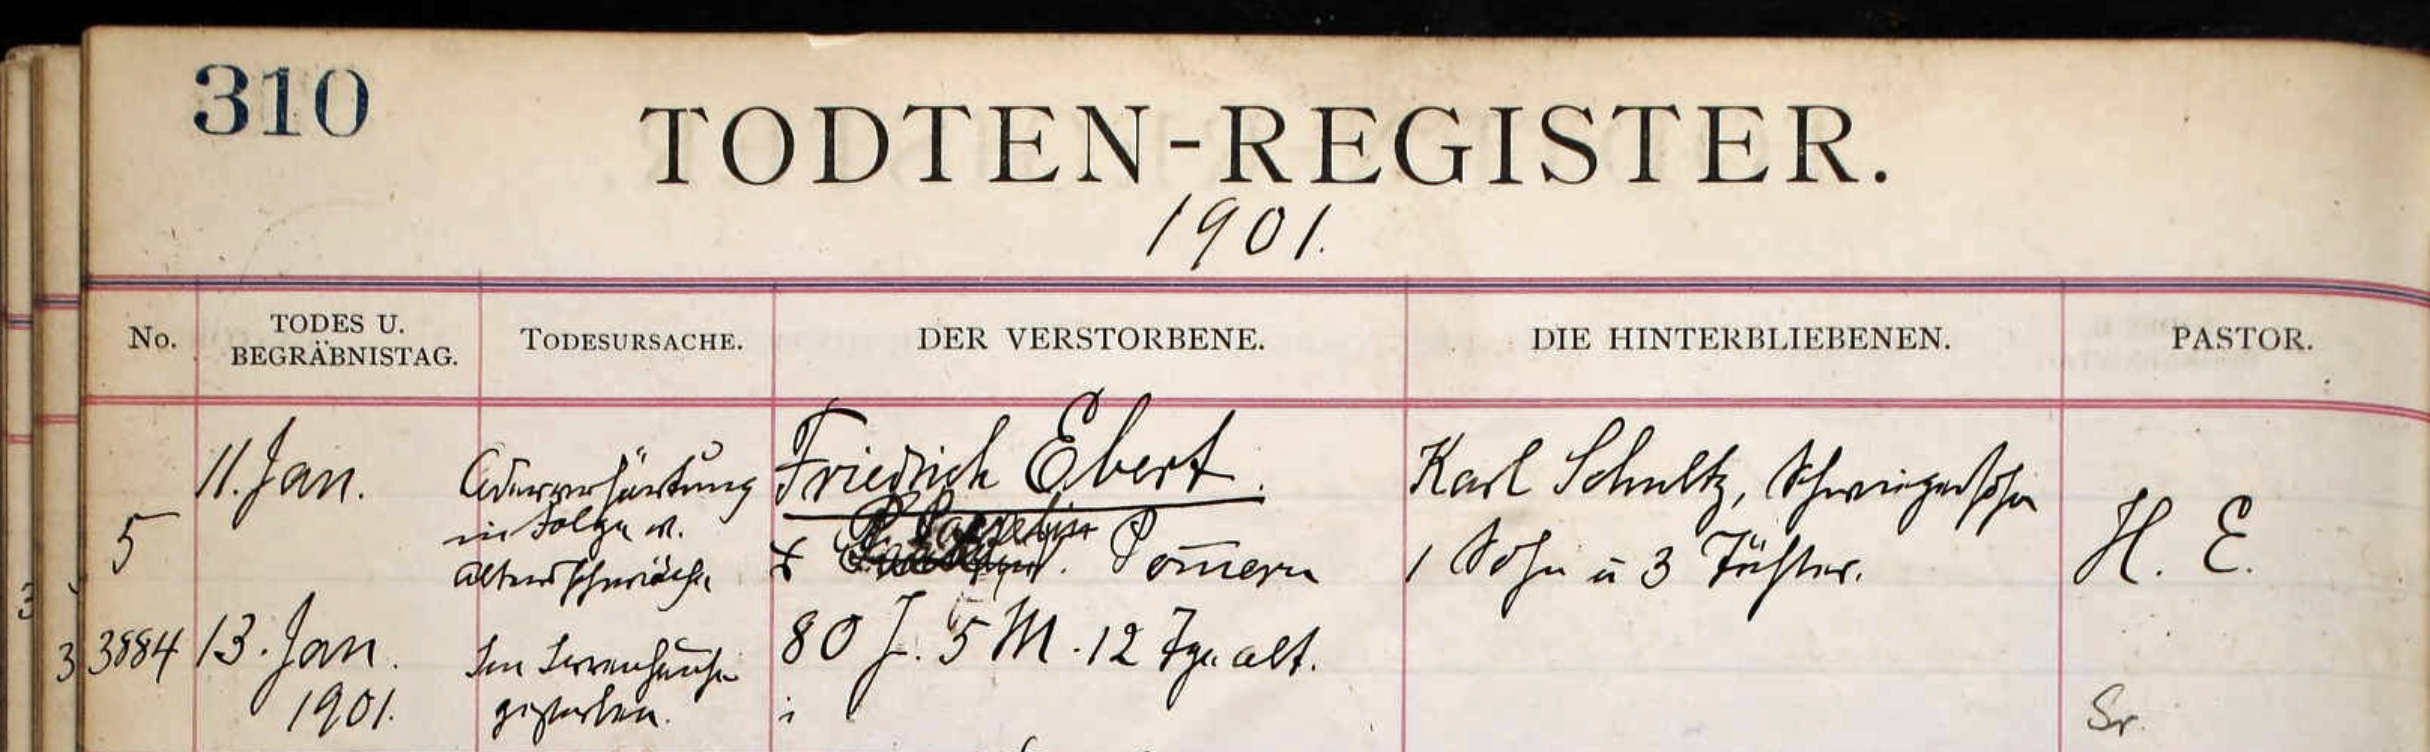 310
TODTEN-REGISTER.
1901.
No.
TODES U.
BEGRÄBNISTAG.
TODESURSACHE.
DER VERSTORBENE.
DIE HINTERBLIEBENEN.
PASTOR.
5
3884
11. Jan.
13. Jan.
1901.
Aderverhärtung
in Folge v.
Altersschwäche
Im Irrenhause
gestorben.
Friedrich Ebert.
Pom̄ern
80 J. 5 M. 12 Tge. alt.
Karl Schultz, Schwiegersohn
1 Sohn ü 3 Töchter.
H. E.
Sr.